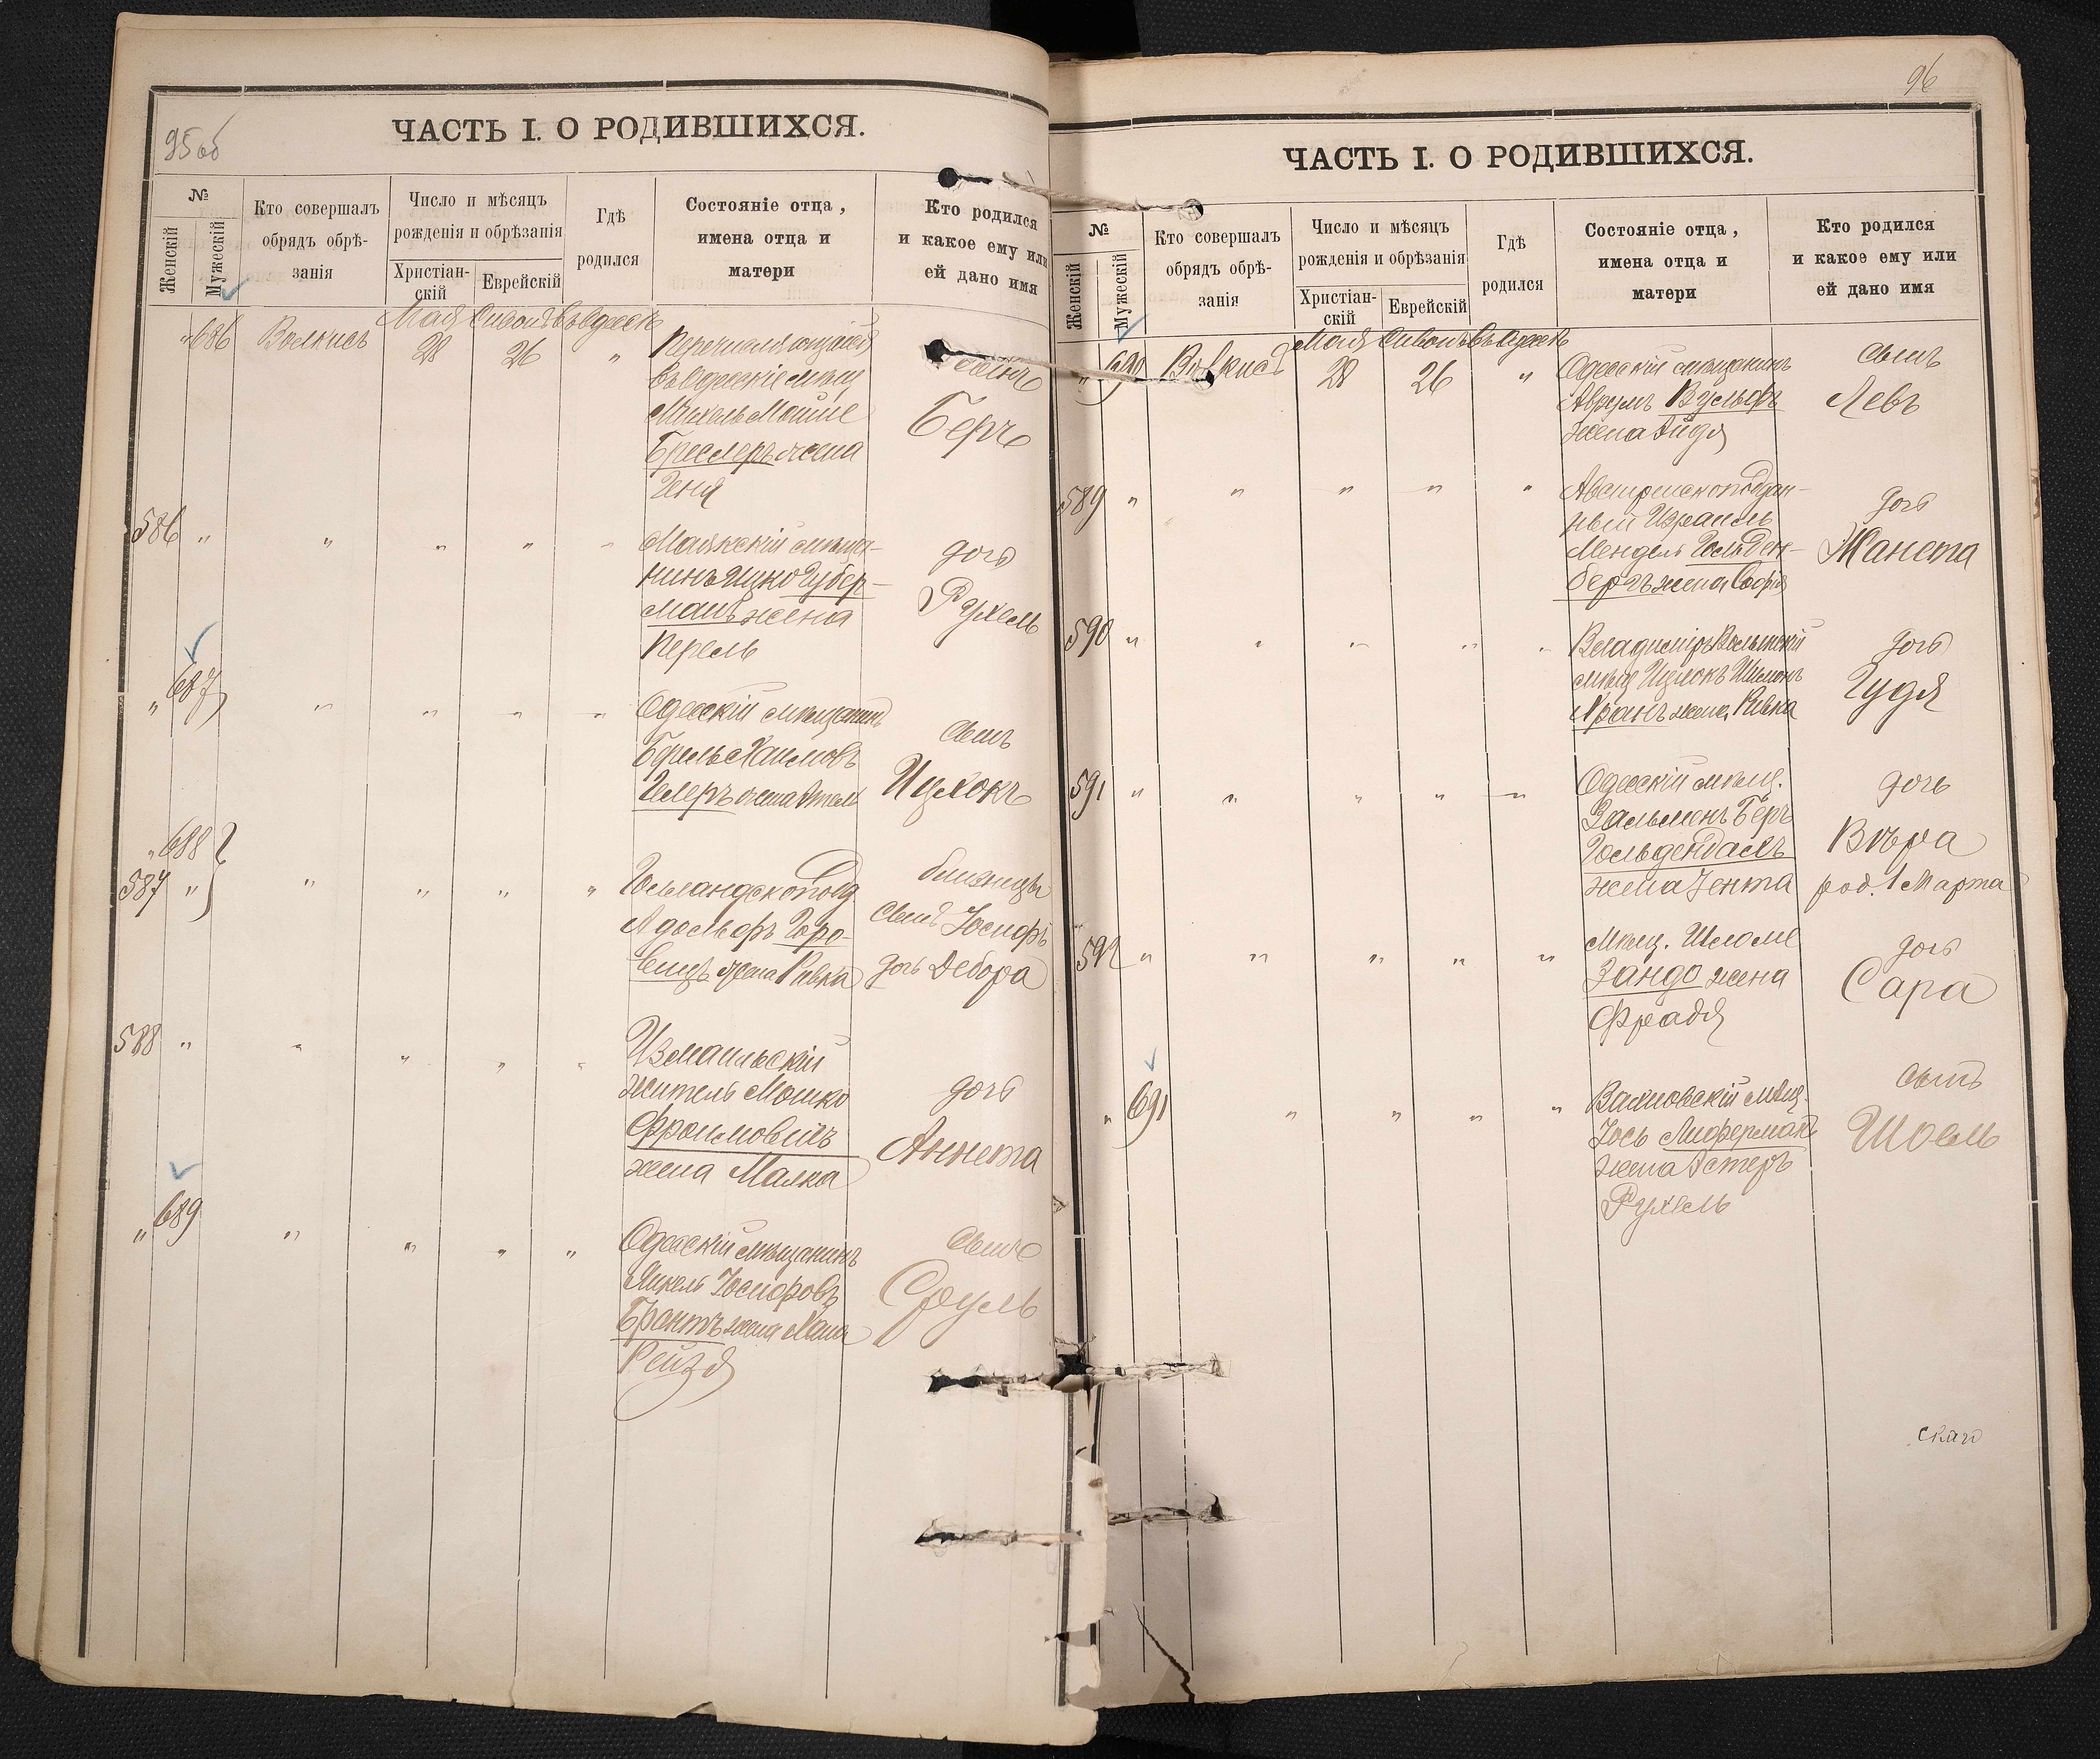 95об
ЧАСТЬ I. О РОДИВШИХСЯ.
№
Женскій
Мужескій
Кто совершалъ
обрядъ обрѣ-
занія
Число и мѣсяцъ
рожденія и обрѣзанія
Христіан-
скій
Еврейскій
Гдѣ
родился
Состояніе отца,
имена отца и
матери
Кто родился
и какое ему или
ей дано имя
" 686 Мая Сиванъ въ Одессѣ
28 26 "
въ Одесскіе мѣщ
Мошке
Бреслеръ жена
Геня
сынъ
Беръ
586 " " " " "
Маякскій мѣща-
нинъ Ицко Губер-
манъ жена
Перель
дочь
Рухель
" 687 " " " "
Одесскій мѣщанинъ
Хаимовъ
Гелеръ жена Этель
сынъ
Ицхокъ
" 688
587 " " " " "
Голландскопод
Адольфъ Горо-
вицъ жена Ривка
близнецы
сынъ Іосифъ
дочь Дебора
588 " " " " "
Измаильскій
житель Мошко
Фроимовичъ
жена Малка
дочь
Аннета
" 689 " " " "
Одесскій мѣщанинъ
Іосифовъ
Брантъ жена Хана
Рейзя
сынъ
Сруль
96
ЧАСТЬ I. О РОДИВШИХСЯ.
№
Женскій
Мужескій
Кто совершалъ
обрядъ обрѣ-
занія
Число и мѣсяцъ
рожденія и обрѣзанія
Христіан-
скій
Еврейскій
Гдѣ
родился
Состояніе отца,
имена отца и
матери
Кто родился
и какое ему или
ей дано имя
" 690 Мая Сиванъ въ Одессѣ
28 26 "
Одесскій мѣщанинъ
Аврумъ Вульфъ
жена Гитля
сынъ
Левъ
589 " " " " "
Австрійскоподдан-
ный Израиль
Мендель Гольден-
бергъ жена Софія
дочь
Жанета
590 " " " " "
Владиміръ Волынскій
мѣщ Ицхокъ Шимонъ
жена Ривка
дочь
Гудя
591 " " " " "
Одесскій мѣщ.
Зальменъ Беръ
Гольдендахъ
жена Зента
дочь
Вѣра
род. 1 Марта
592 " " " " "
Мѣщ. Шломе
Зандо жена
Фрадя
дочь
Сара
" 691 " " " "
Вахновскій мѣщ.
Іось Лиферманъ
жена Эстеръ
Рухель
сынъ
Шоель